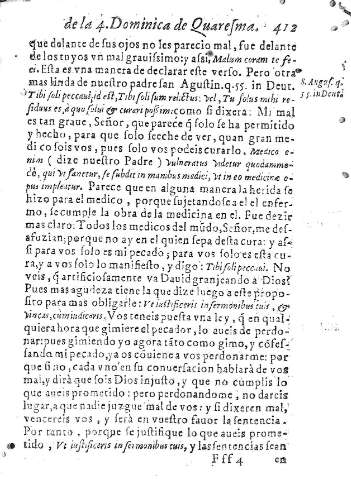 de la 4. Dominica de Quaresma. 412
que delante de sus ojos no les parecio mal, fue delante
de los tuyos vn mal grauissimo; y assi, Malum coram te fe-
ci. Esta es vna manera de declarar este verso. Pero otra
mas linda de nuestro padre san Agustin. q. 55. in Deut.
S. Augus. q.
55. in Deut.
Tibi soli peccaui, id est, Tibi soli sum relictus: vel, Tu solus mihi re-
siduus es, à quo solui & curari possim: como si dixera: Mi mal
es tan graue, Señor, que parece q̃ solo se ha permitido
y hecho, para que solo se eche de ver, quan gran me-
dico sois vos, pues solo vos podeis curarlo. Medico e-
nim (dize nuestro Padre) vulneratus videtur quodammo-
dò, qui vt sanetur, se subdit in manibus medici, vt in eo medicinæ o-
pus impleatur. Parece que en alguna manera la herida se
hizo para el medico, porque sujetandose a el el enfer-
mo, se cumple la obra de la medicina en el. Fue dezir
mas claro: Todos los medicos del mũdo, Señor, me des-
afuzian; porque no ay en el quien sepa desta cura: y as-
si para vos solo es mi pecado; para vos solo es esta cu-
ra, y a vos solo lo manifiesto, y digo: Tibi soli peccaui. No
veis, q̃ artificiosamente va Dauid granjeando à Dios?
Pues mas agudeza tiene la que dize luego a este propo-
sito para mas obligarle: Vt iustificeris in sermonibus tuis, &
vincas, cum iudicaris. Vos teneis puesta vna ley, q̃ en qual-
quiera hora que gimiere el pecador, lo aueis de perdo-
nar: pues gimiendo yo agora tãto como gimo, y cõfes-
sando mi pecado, ya os cõuiene a vos perdonarme: por
que si no, cada vno en su conuersacion hablarà de vos
mal, y dirà que sois Dios injusto, y que no cumplis lo
que aueis prometido: pero perdonandome, no dareis
lugar, a que nadie juzgue mal de vos: y si dixeren mal,
vencereis vos, y serà en vuestro fauor la sentencia.
Por tanto, porque se justifique lo que aueis prome-
tido, Vt iustificeris in sermonibus tuis, y las sentencias sean
Fff 4 en